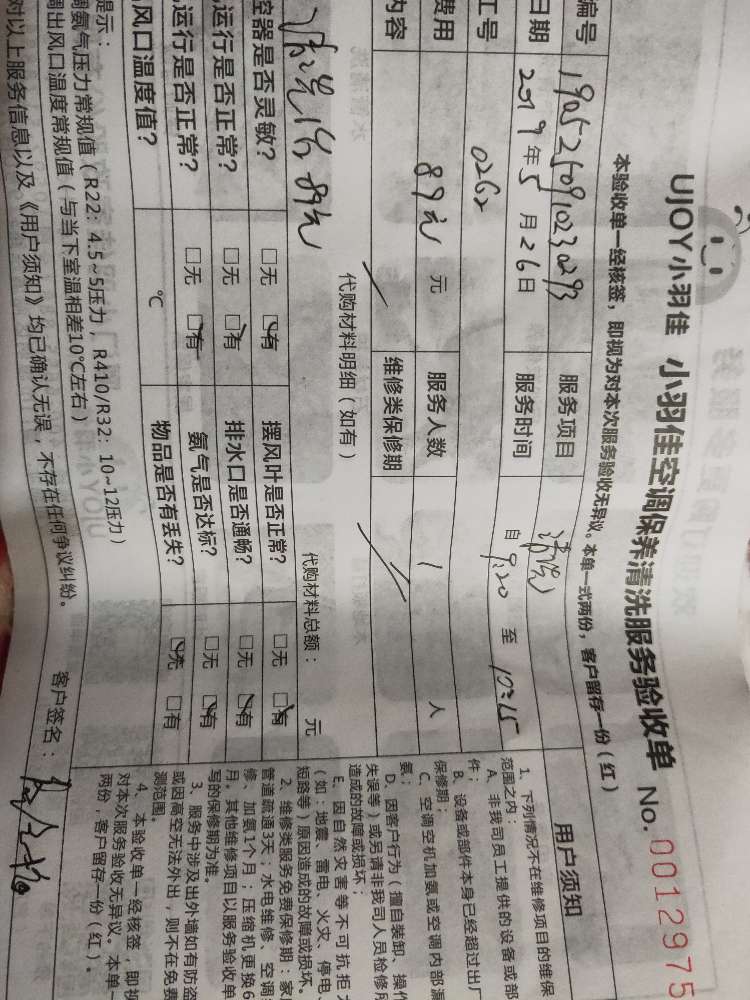 UJOY小羽佳 小羽佳空调保养清洗服务验收单 No. 0012975
本验收单一经核签，即视为对本次服务验收无异议。本单一式两份，客户留存一份（红）
编号 1905250910230293 服务项目 清洗
日期 2019年5月26日 服务时间 自 9:20 至 10:15
工号 0262
费用 89元 元 服务人数 1 人
内容 维修类保修期
代购材料明细（如有）
清洗1台89元
代购材料总额： 元
控器是否灵敏？ □无 □有 摆风叶是否正常？ □无 □有
运行是否正常？ □无 □有 排水口是否通畅？ □无 □有
运行是否正常？ □无 □有 氨气是否达标？ □无 □有
风口温度值？ ℃ 物品是否有丢失？ □无 □有
提示：
调氨气压力常规值（R22：4.5~5压力，R410/R32：10~12压力）
调出风口温度常规值（与当下室温相差10℃左右）
对以上服务信息以及《用户须知》均已确认无误，不存在任何争议纠纷。
客户签名：
用户须知
1、下列情况不在维修项目的维保
范围之内：
A、非我司员工提供的设备或部
件；
B、设备或部件本身已经超过出厂
保修期；
C、空调空机加氨或空调内部漏
氨；
D、因客户行为（擅自装卸、操作
失误等）或另请非我司人员检修所
造成的故障或损坏；
E、因自然灾害等不可抗拒
（如：地震、雷电、火灾、停电、
短路等）原因造成的故障或损坏。
2、维修类服务免费保修期：家
管道疏通3天；水电维修、空调
修、加氨1个月；压缩机更换6
月。其他维修项目以服务验收单
写的保修期为准。
3、服务中涉及出外墙如有防盗
或因高空无法外出，则不在免费
测范围。
4、本验收单一经核签，即视
对本次服务验收无异议。本单一
两份，客户留存一份（红）。